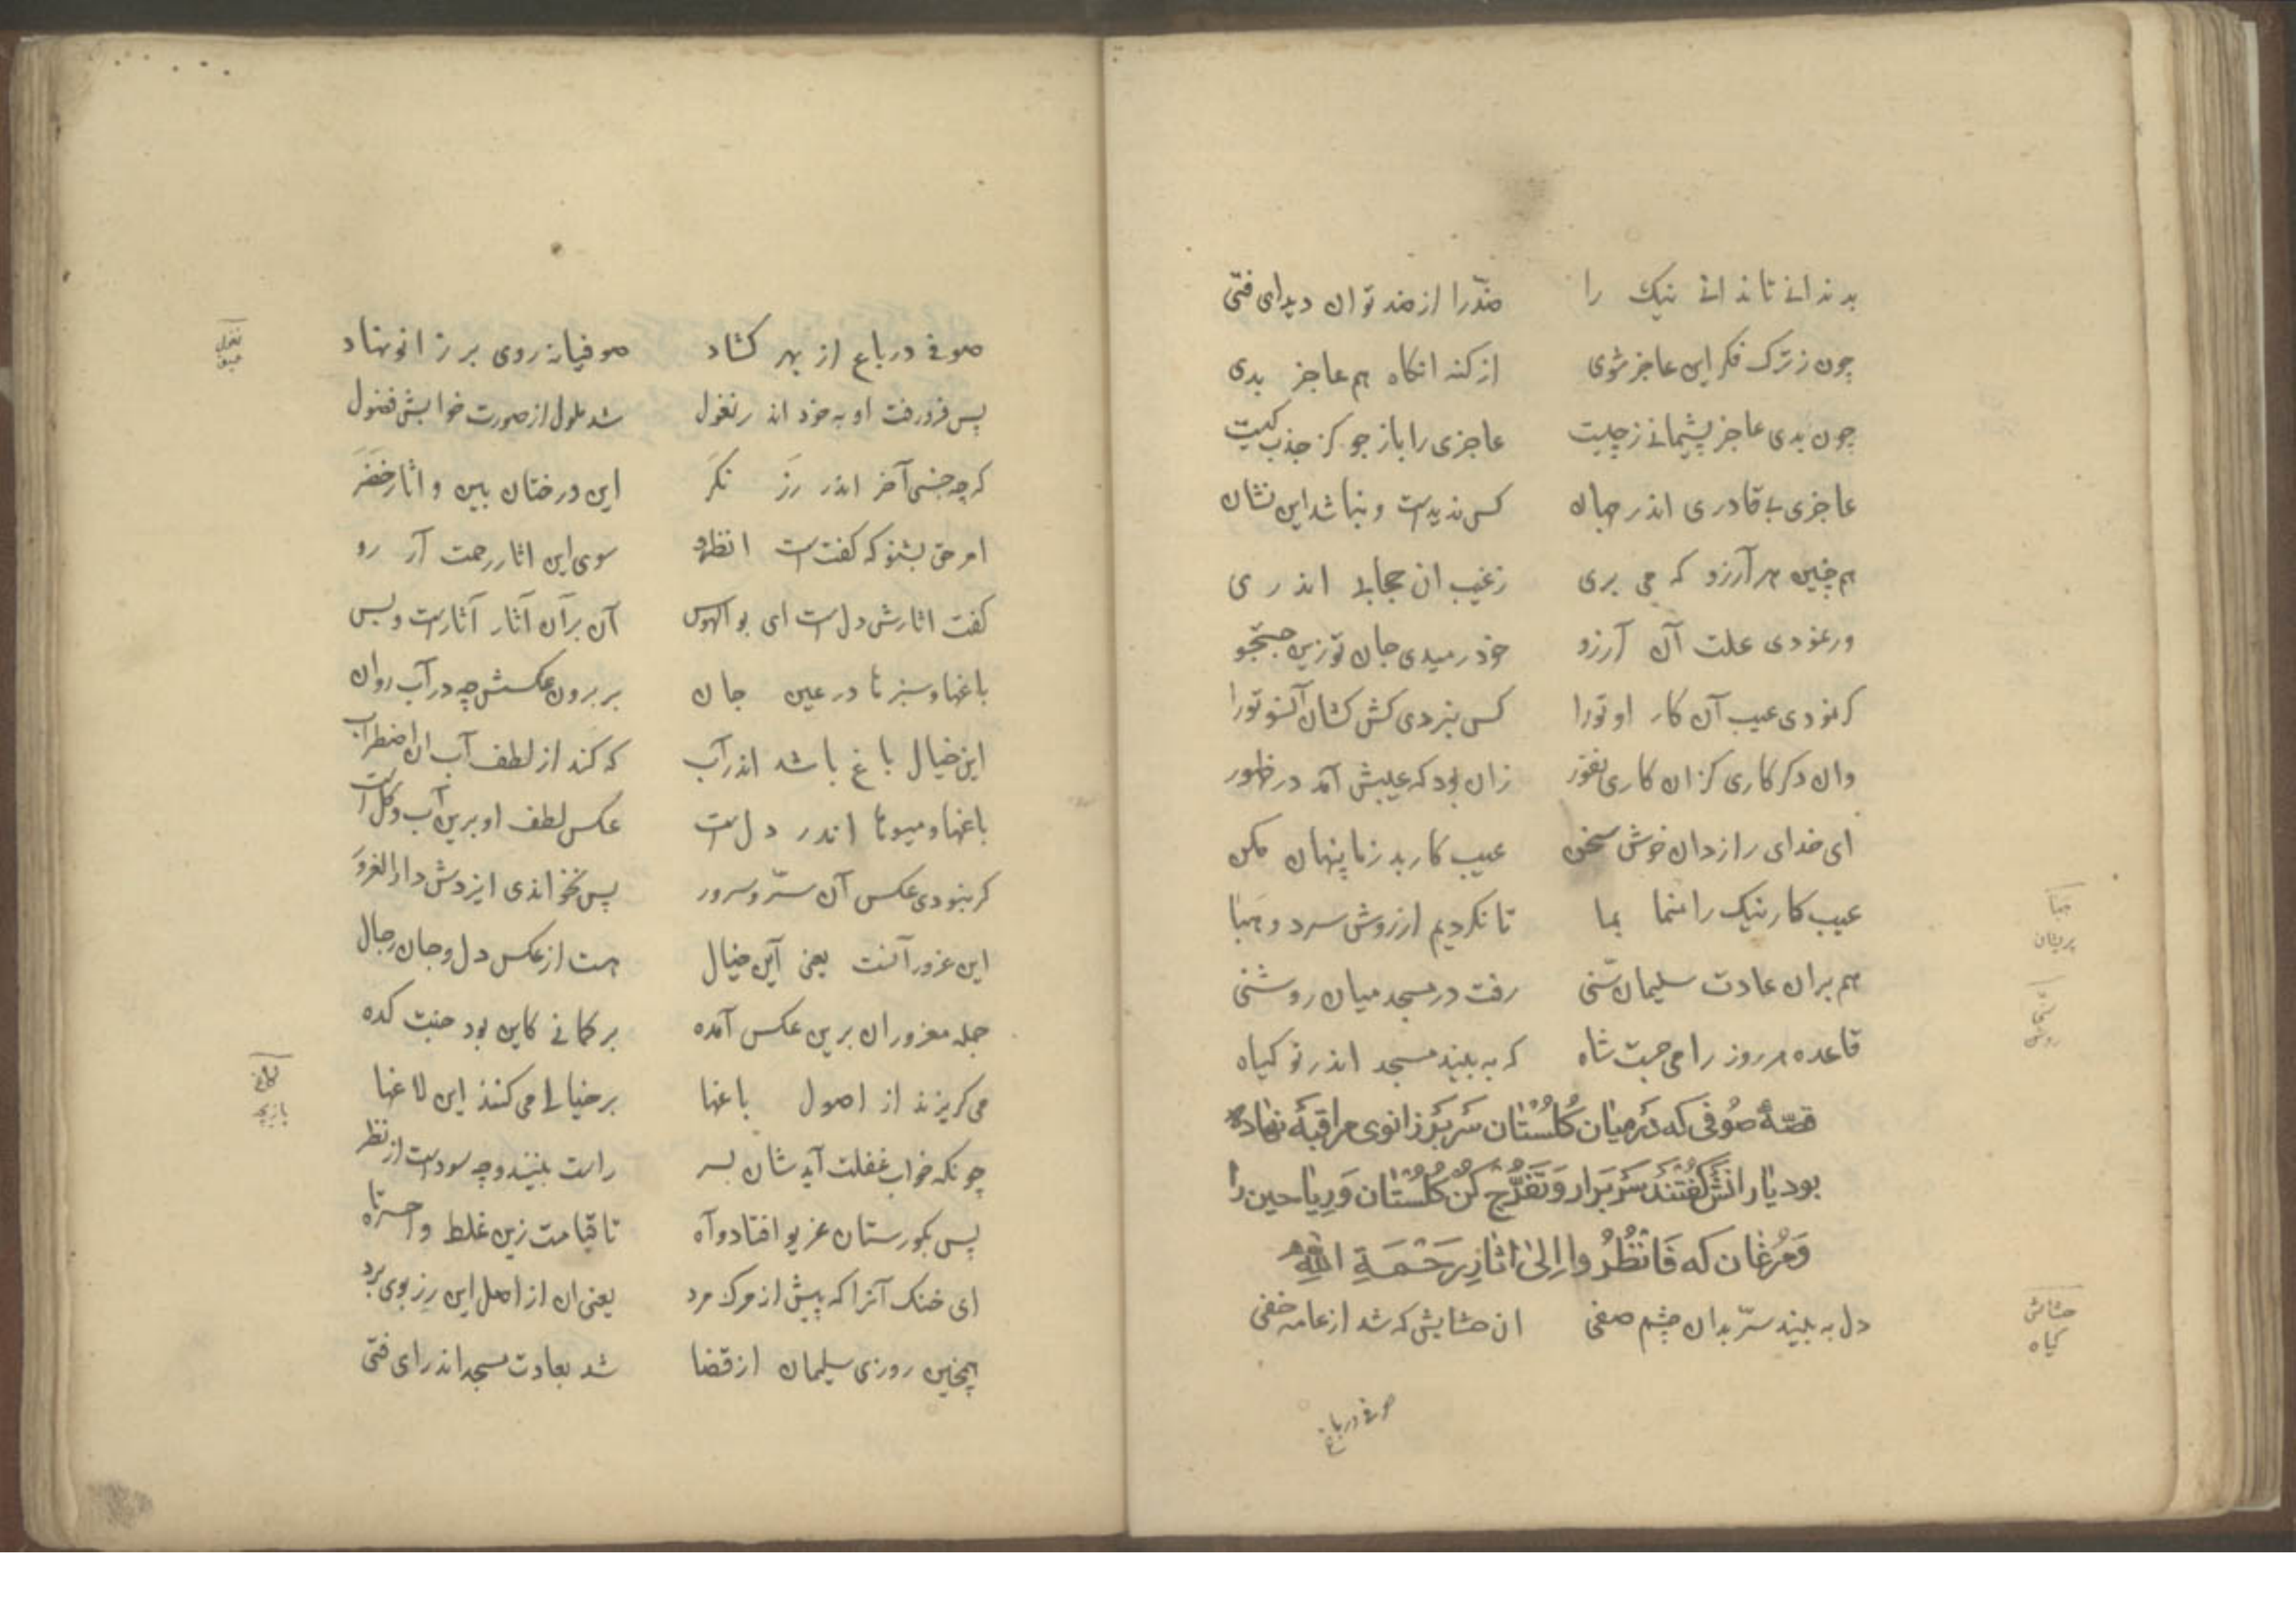 بد ندانی تا ندانی نیک را ضدّرا از ضد توان دید ای فتی
چون ز ترک فکر این عاجز شوی از کنه انکاه هم عاجز بدی
چون بدی عاجز پشیمانی ز چیست عاجزی را باز جو کز جذب کیست
عاجزی بی قادری اندر جهان کس ندیدست و نباشد این نشان
هم چنین هر آرزو که می بری ز عیب ان حجابی اندری
ور نمودی علت آن آرزو خود رمیدی جان تو زین جستجو
کر نمودی عیب آن کار او تورا کس نبردی کش کشان آنسو تورا
وان دکر کاری کزان کاری نفور زان بود که عیبش آمد در ظهور
ای خدای راز دان خوش سخن عیب کار بد ز ما پنهان مکن
عیب کار نیک را منما بما تا نکردیم از روش سرد و هبا
هبا
پریشان
هم بران عادت سلیمان سنی رفت در مسجد میان روشنی
روشن
قاعده هر روز را می جست شاه که به بیند مسجد اندر نو کیاه
قصّهٔ صُوفی که دَرمیان کُلُستان سَر بَر زانوی مراقبه نهاده
بود یارانش کُفتند سَر بَرار وَتَفَرُّج کُن کُلُستان وَرِیاحین را
وَمُرغان که فَانْظُرُوا اِلٰی اٰثَارِ رَحْمَةِ اللّٰهِ
دل به بیند سرّ بدان چشم صفی ان حشایش که شد از عامه خفی
حشایش
کیاه
صوفی در باغ
صوفی در باغ از بهر کشاد صوفیانه روی بر زانو نهاد
نغول
عمیق
پس فرو رفت او به خود اندر نغول شد ملول از صورت خوابش فضول
که چه خسبی آخر اندر رَز نکَر این درختان بین و اثار خضَر
امر حق بشنو که کفتست انظروا سوی این اثار رحمت آر رو
کفت اثارش دلست ای بو الهوس آن برآن آثار آثارست و بس
باغها و سبزها در عین جان بر برون عکسش چه در آب روان
این خیال باغ باشد اندر آب که کند از لطف آب ان اضطراب
باغها و میوها اندر دلست عکس لطف او برین آب و کلست
کر نبودی عکس آن سرّ و سرور پس نخواندی ایزدش دار الغرور
این غرور آنست یعنی این خیال هست از عکس دل و جان رجال
جمله مغروران برین عکس آمده بر کمانی کاین بود جنت کده
می کریزند از اصول باغها بر خیالی می کنند این لاغها
لاغی
بازیچه
چونکه خواب غفلت آید شان بسر راست بینند و چه سودست از نظر
پس بکورستان غریو افتاد و آه تا قیامت زین غلط واحسرتاه
ای خنک آنرا که پیش از مرک مرد یعنی ان از اصل این رز بوی برد
همچنین روزی سلیمان از قضا شد بعادت مسجد اندر ای فتی